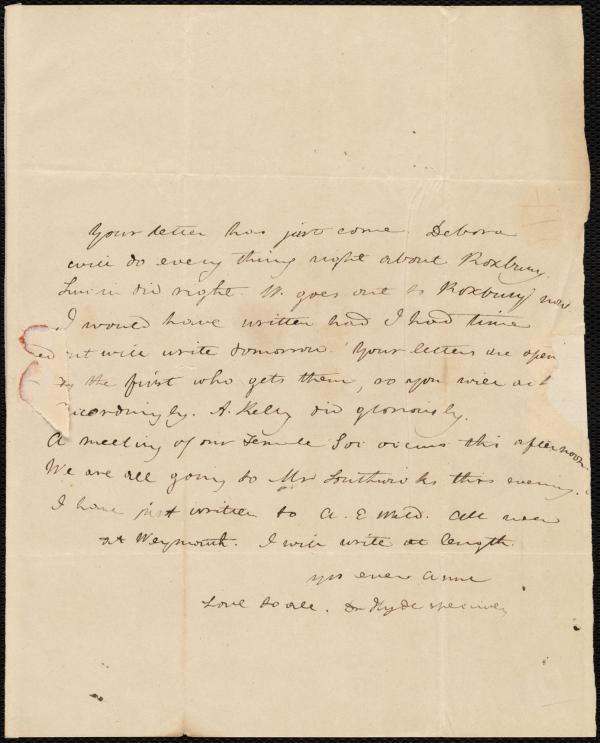 Your letter has just come. Debora
will do every thing right about Roxbury.
did right. W. goes out to Roxbury now
I would have written had I had time
will write tomorrow. Your letters are open
the first who gets them, so you will act
accordingly. A. Kelly did gloriously.
A meeting of our Female Soc this afternoon.
We are all going to Mr Southwicks this evening.
I have just written to A. E. All
at Weymouth. I will write at length.
yrs ever Anne
Love to all. Dr Hyde